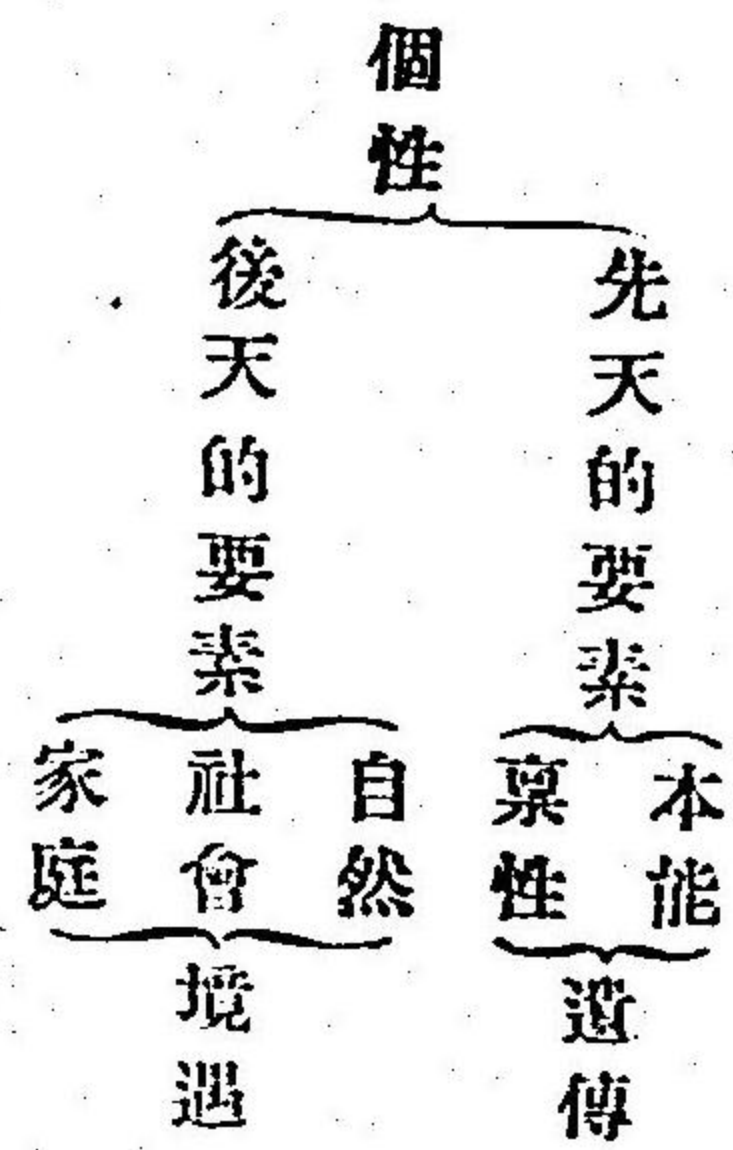 個性
先天的要素
本能
禀性
遺傳
後天的要素
自然
社會
家庭
境遇